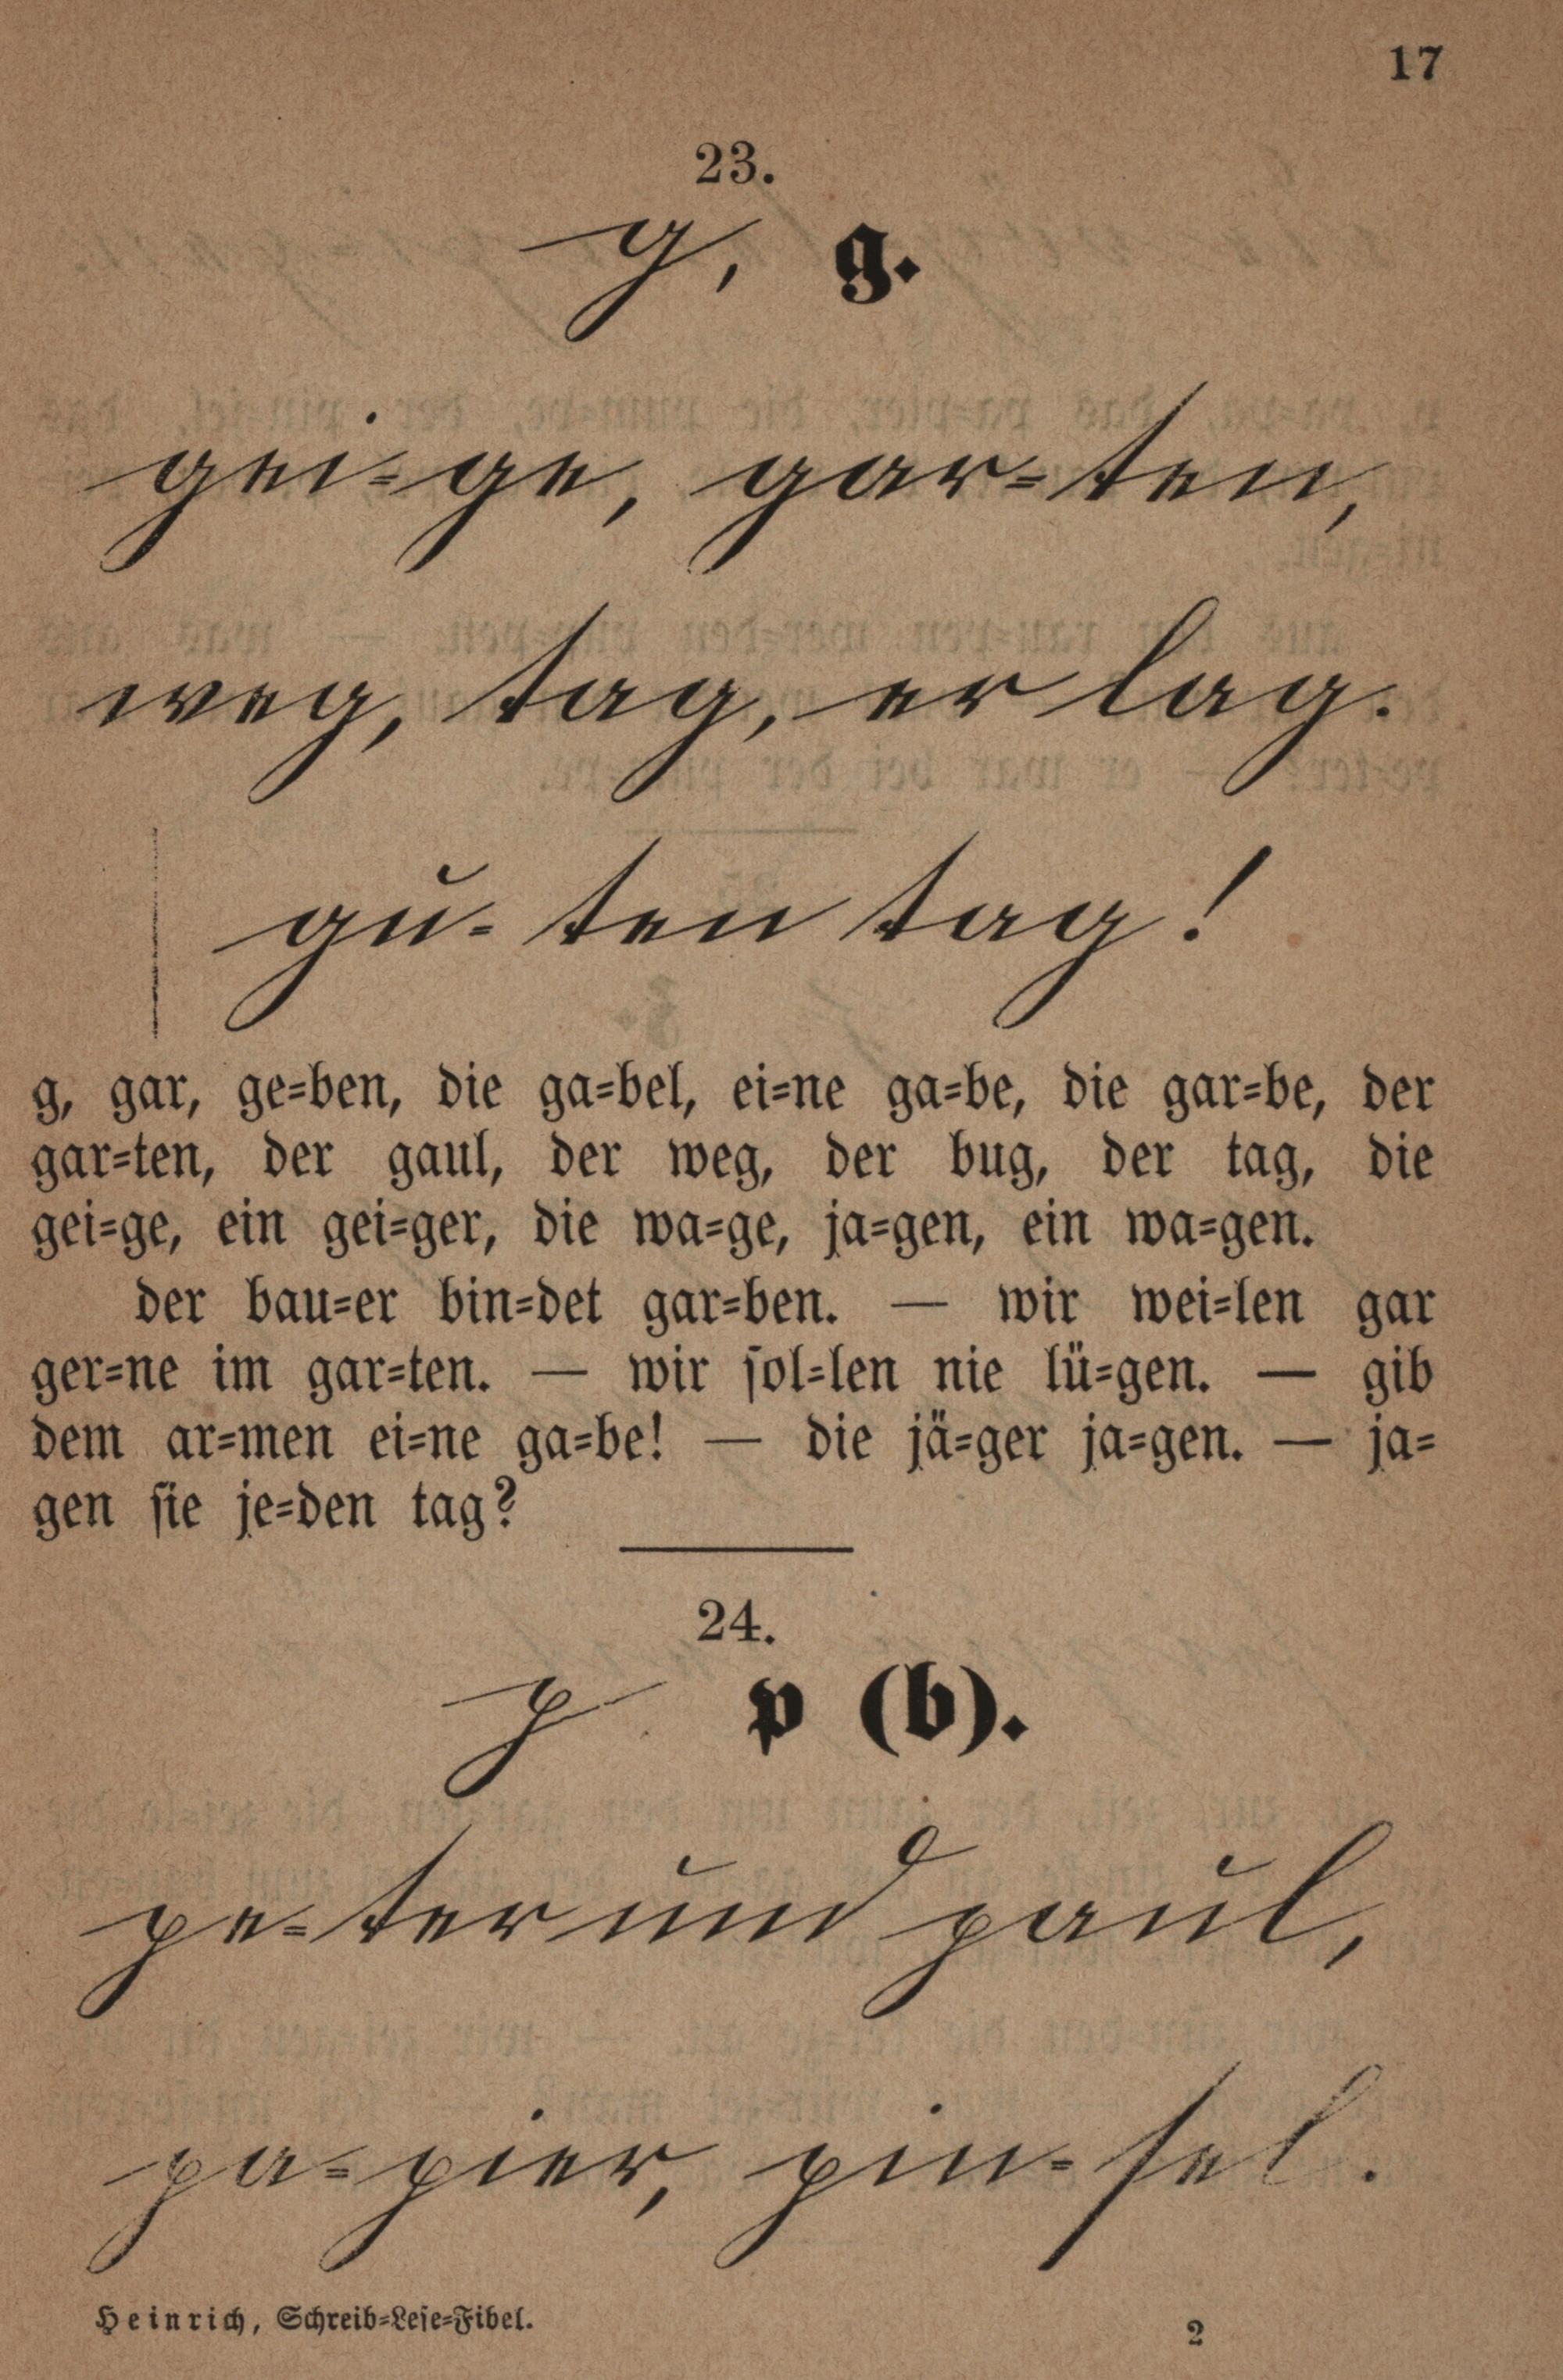 17
23.
g, g.
gei=ge, gar=ten,
weg, tag, er lag.
gu=ten tag!
g, gar, ge=ben, die ga=bel, ei=ne ga=be, die gar=be, der
gar=ten, der gaul, der weg, der bug, der tag, die
gei=ge, ein gei=ger, die wa=ge, ja=gen, ein wa=gen.
der bau=er bin=det gar=ben. — wir wei=len gar
ger=ne im gar=ten. — wir ſol=len nie lü=gen. — gib
dem ar=men ei=ne ga=be! — die jä=ger ja=gen. — ja=
gen ſie je=den tag?
24.
p p (b).
pe=ter und paul,
pa=pier, pin=ſel.
Heinrich, Schreib=Leſe=Fibel.
2